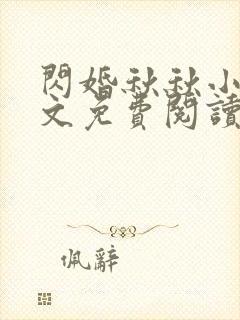 閃婚秋秋小
文免費閱讀
佩辭